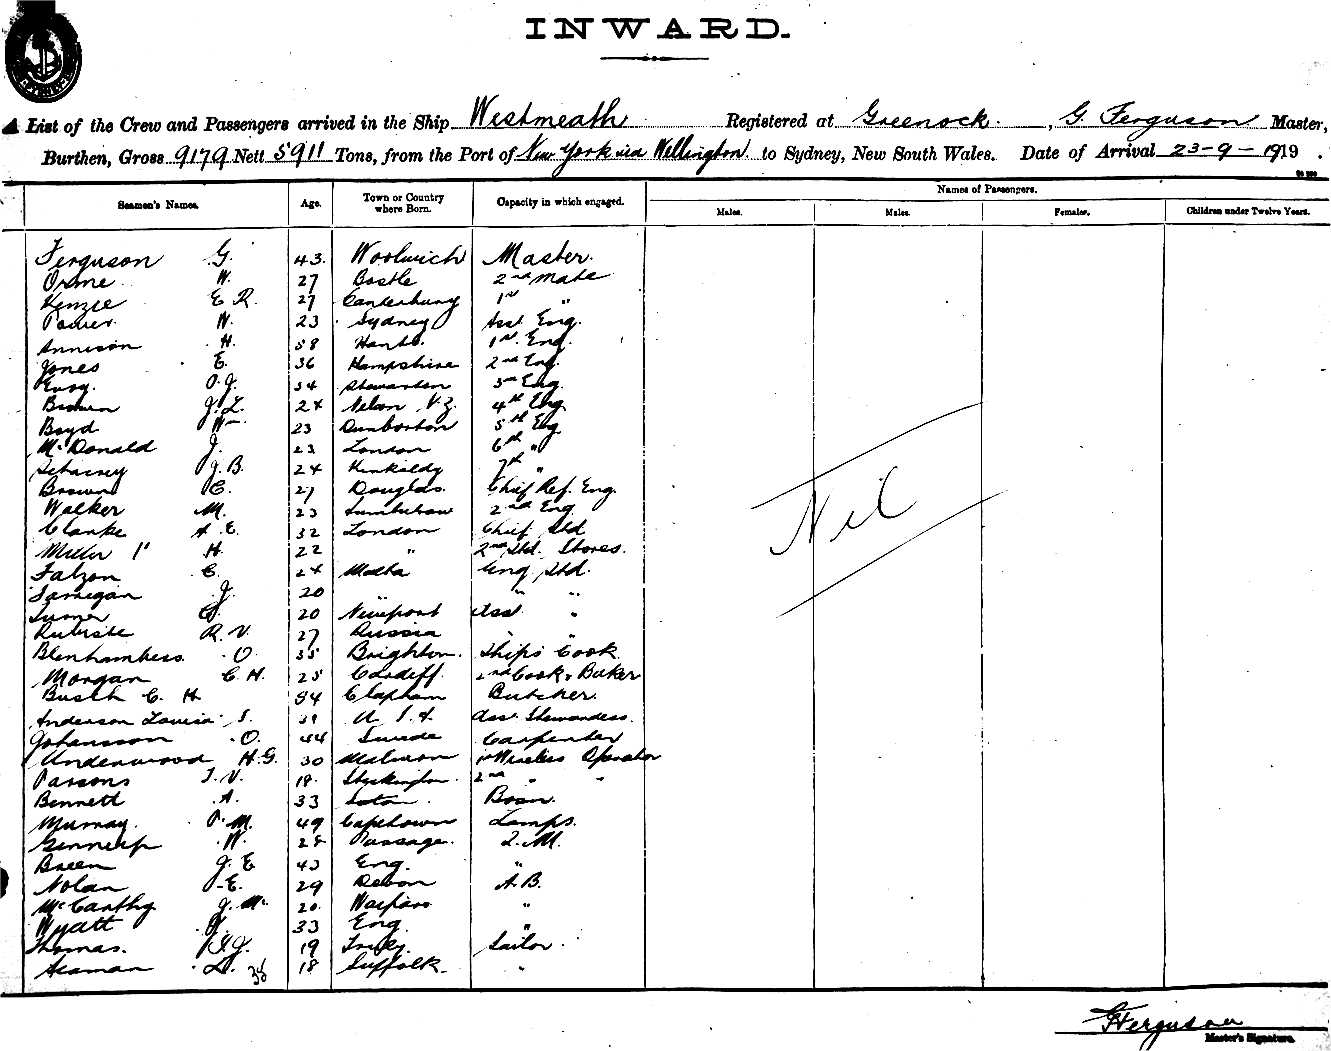 INWARD.
A List of the Crew and Passengers arrived in the Ship Westmeath Registered at Greenock. , G. Ferguson Master,
Burthen, Gross 9179 Nett 5911 Tons, from the Port of New York via Wellington to Sydney, New South Wales. Date of Arrival 23-9-1919.
Names of Passengers.
Seamen's Names. Age. Town or Country where Born. Capacity in which engaged. Males. Males. Females. Children under Twelve Years.
Ferguson G. 43. Woolwich Master.
Orme W. 27 Bootle 2nd Mate
Kenzee E R. 27 Canterbury 1st "
Power. W. 23 Sydney Asst Eng.
Annison H. 38 Hants. 1st Eng.
Jones E. 36 Hampshire 2nd Eng
O.J. 34 3rd Eng
Brown J.L. 24 Nelson N.Z. 4th Eng
Boyd W- 23 Dunbarton 5th Eng
McDonald J. 23 London 6th "
J.B. 24 Kirkaldy 7th "
Brown C. 27 Douglas. Chief Ref. Eng.
Walker M. 23 2nd Eng
Clarke A. E. 32 London Chief Std
Miller H. 22 " 2nd Std. Stores.
Falzon C. 24 Malta Eng. Std.
J. 20 " " "
Turner 20 Newport Asst "
R. V. 27 Russia " "
Blenhambers. O. 35 Brighton. Ships Cook
Morgan C H. 25 Cardiff. 2nd Cook & Baker
Busch C. H. 34 Clapham Butcher.
Anderson Louisa S. 39 U. S. A. Ass. Stewardess.
Johansson O. 44 Swede Carpenter
Underwood H.G. 30 1st Wireless Operator
Parsons T. V. 18. 2nd " "
Bennett A. 33 Soton. Bosn.
Murray. P. M. 49 Capetown Lamps.
W. 28 Passage. Q. M.
Breen J. E 43 Eng. "
Nolan P.E. 29 Devon A.B.
McCarthy J. M. 20. "
Wyatt 33 Eng "
Thomas. 19 Sailor.
Seaman L. 38 18 Suffolk. "
Nil
G Ferguson
Master's Signature.